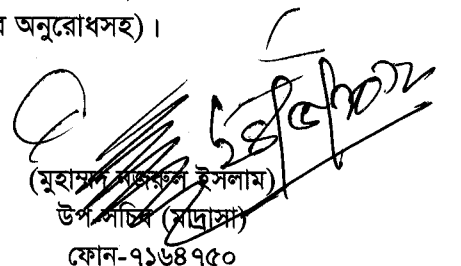 অনুরোধসহ)।
(মুহাম্মদ নজরুল ইসলাম)
উপ-সচিব (মাদ্রাসা)
ফোন-৭১৬৪৭৫০